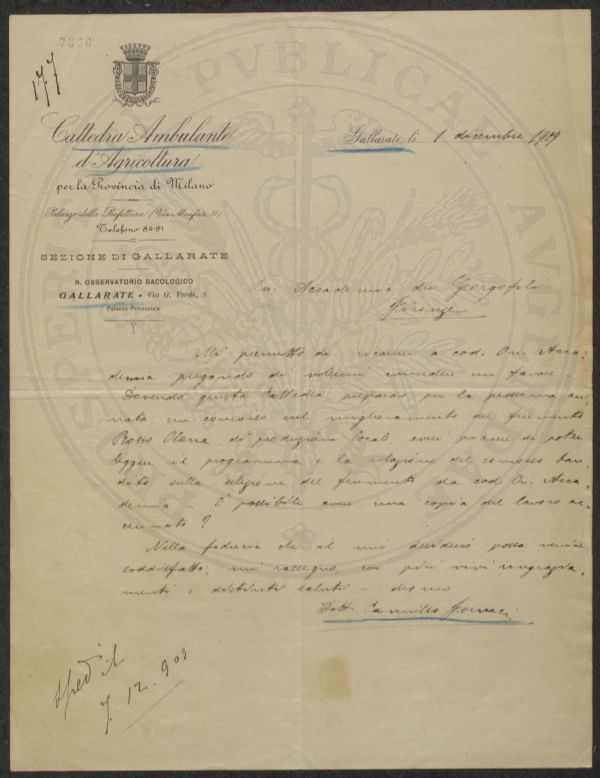 7366
177
Cattedra Ambulante
d'Agricoltura
per la Provincia di Milano
Palazzo della Prefettura (Via Monforte, 31)
Telefono 84-91
SEZIONE DI GALLARATE
R. OSSERVATORIO BACOLOGICO
GALLARATE • Via G. Verdi, 2
Palazzo Provinciale
Gallarate, li 1 dicembre 1909
On. Accademia dei Georgofili
Firenze
Mi permetto di ricorrere a cod. On. Acca-
demia pregando di volermi concedere un favore.
Dovendo questa Cattedra preparare per la prossima an-
nata un concorso sul miglioramento del frumento
Rosso Olona di produzione locale, avrei piacere di poter
leggere il programma e la relazione del concorso ban-
dito sulla selezione del frumento da cod. On. Acca-
demia. È possibile avere una copia del lavoro ac-
cennato?
Nella fiducia che il mio desiderio possa venire
soddisfatto, mi rassegno coi più vivi ringrazia-
menti e distinti saluti - devmo
Dott. Camillo Fornaci
Spedit
7. 12. 909
PROSPERITATI PVBLICAE AVGENDAE